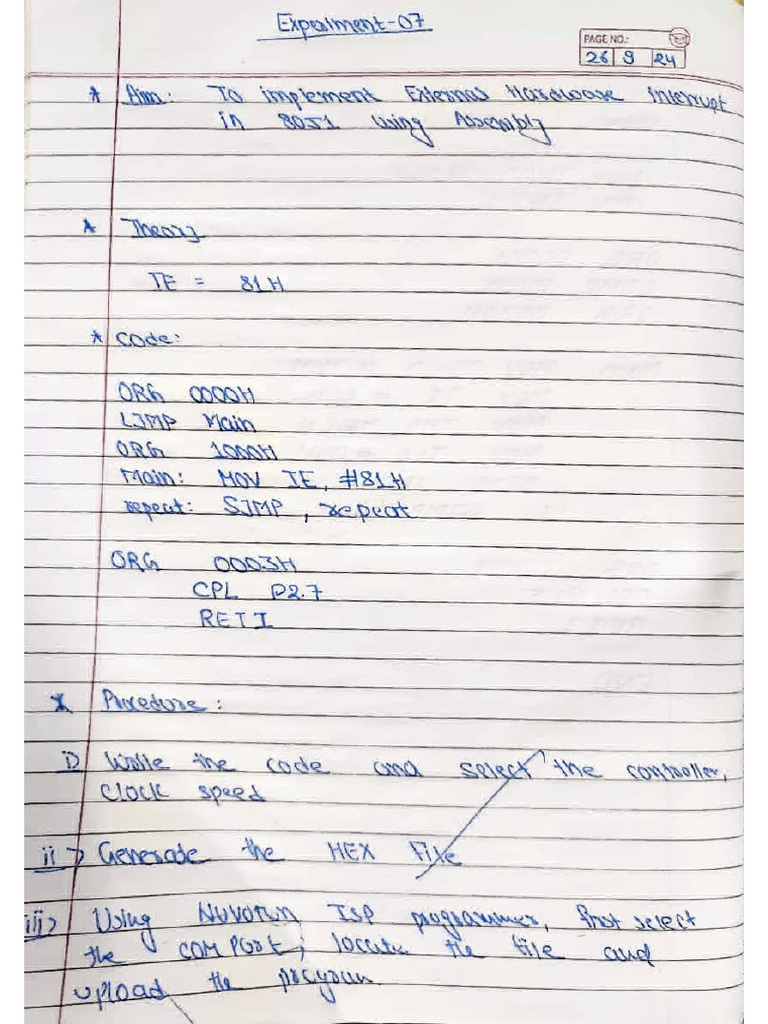 Experiment-07
PAGE NO.:
26 9 24
* Aim: To implement External Hardware interrupt
in 8051 using Assembly
* Theory
IE = 81H
* Code:
ORG 0000H
LJMP Main
ORG 1000H
Main: MOV IE, #81H
repeat: SJMP , repeat
ORG 0003H
CPL P2.7
RETI
* Procedure:
i) Write the code and select the controller,
clock speed
ii) Generate the HEX File
iii) Using Nuvoton ISP programmer, first select
the COM Port, locate the file and
upload the program